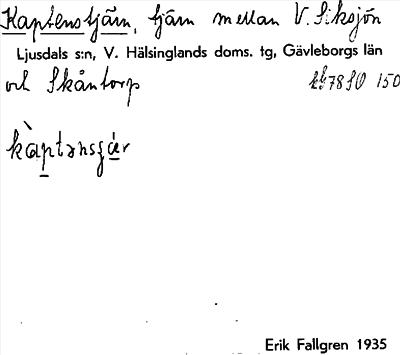 Kaptenstjärn, tjärn mellan V. Siksjön
Ljusdals s:n, V. Hälsinglands doms. tg, Gävleborgs län
och Skåntorp 150
kàptənsʒär
Erik Fallgren 1935